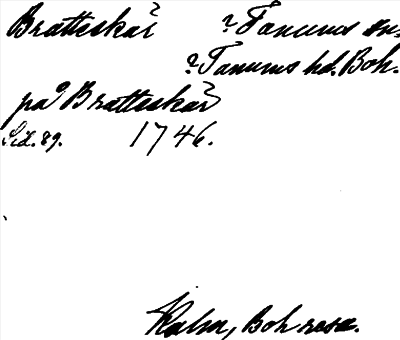 Bratteskär ? Tanums sn.
? Tanums hd. Boh.
på Bratteskär
Sid. 89. 1746.
Kalm, Boh resa.